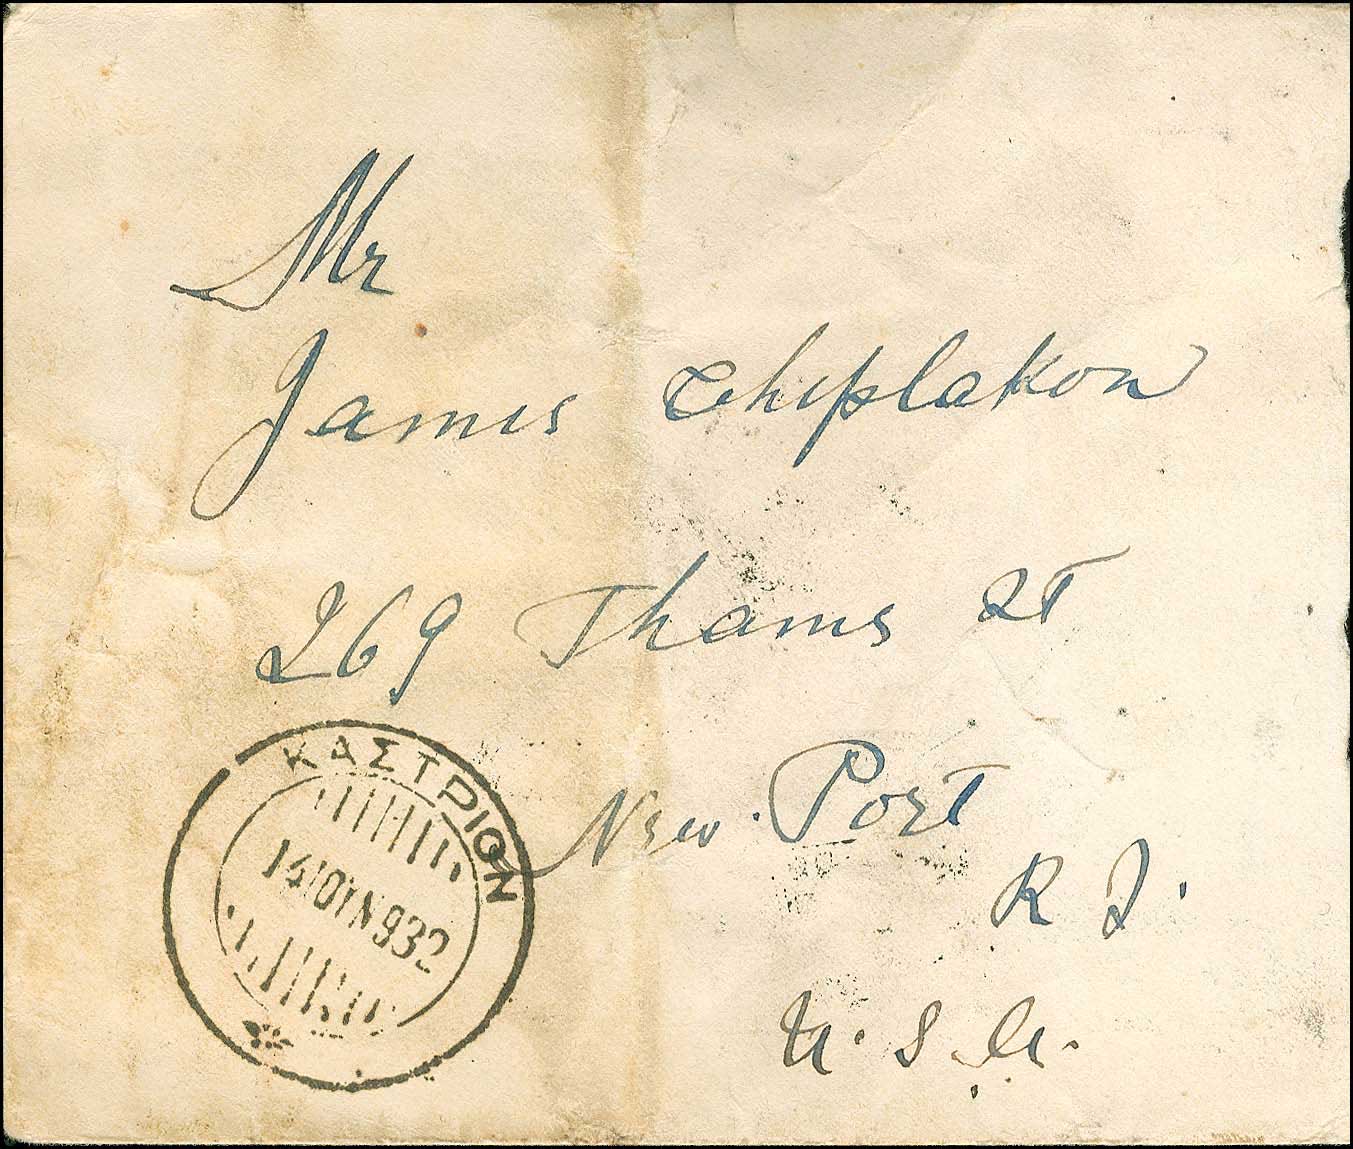 Mr
James Chiplakon
269 Thams St
New. Port
R I.
U. S. A.
ΚΑΣΤΡΙΟΝ
14 ΙΟΥΝ 932